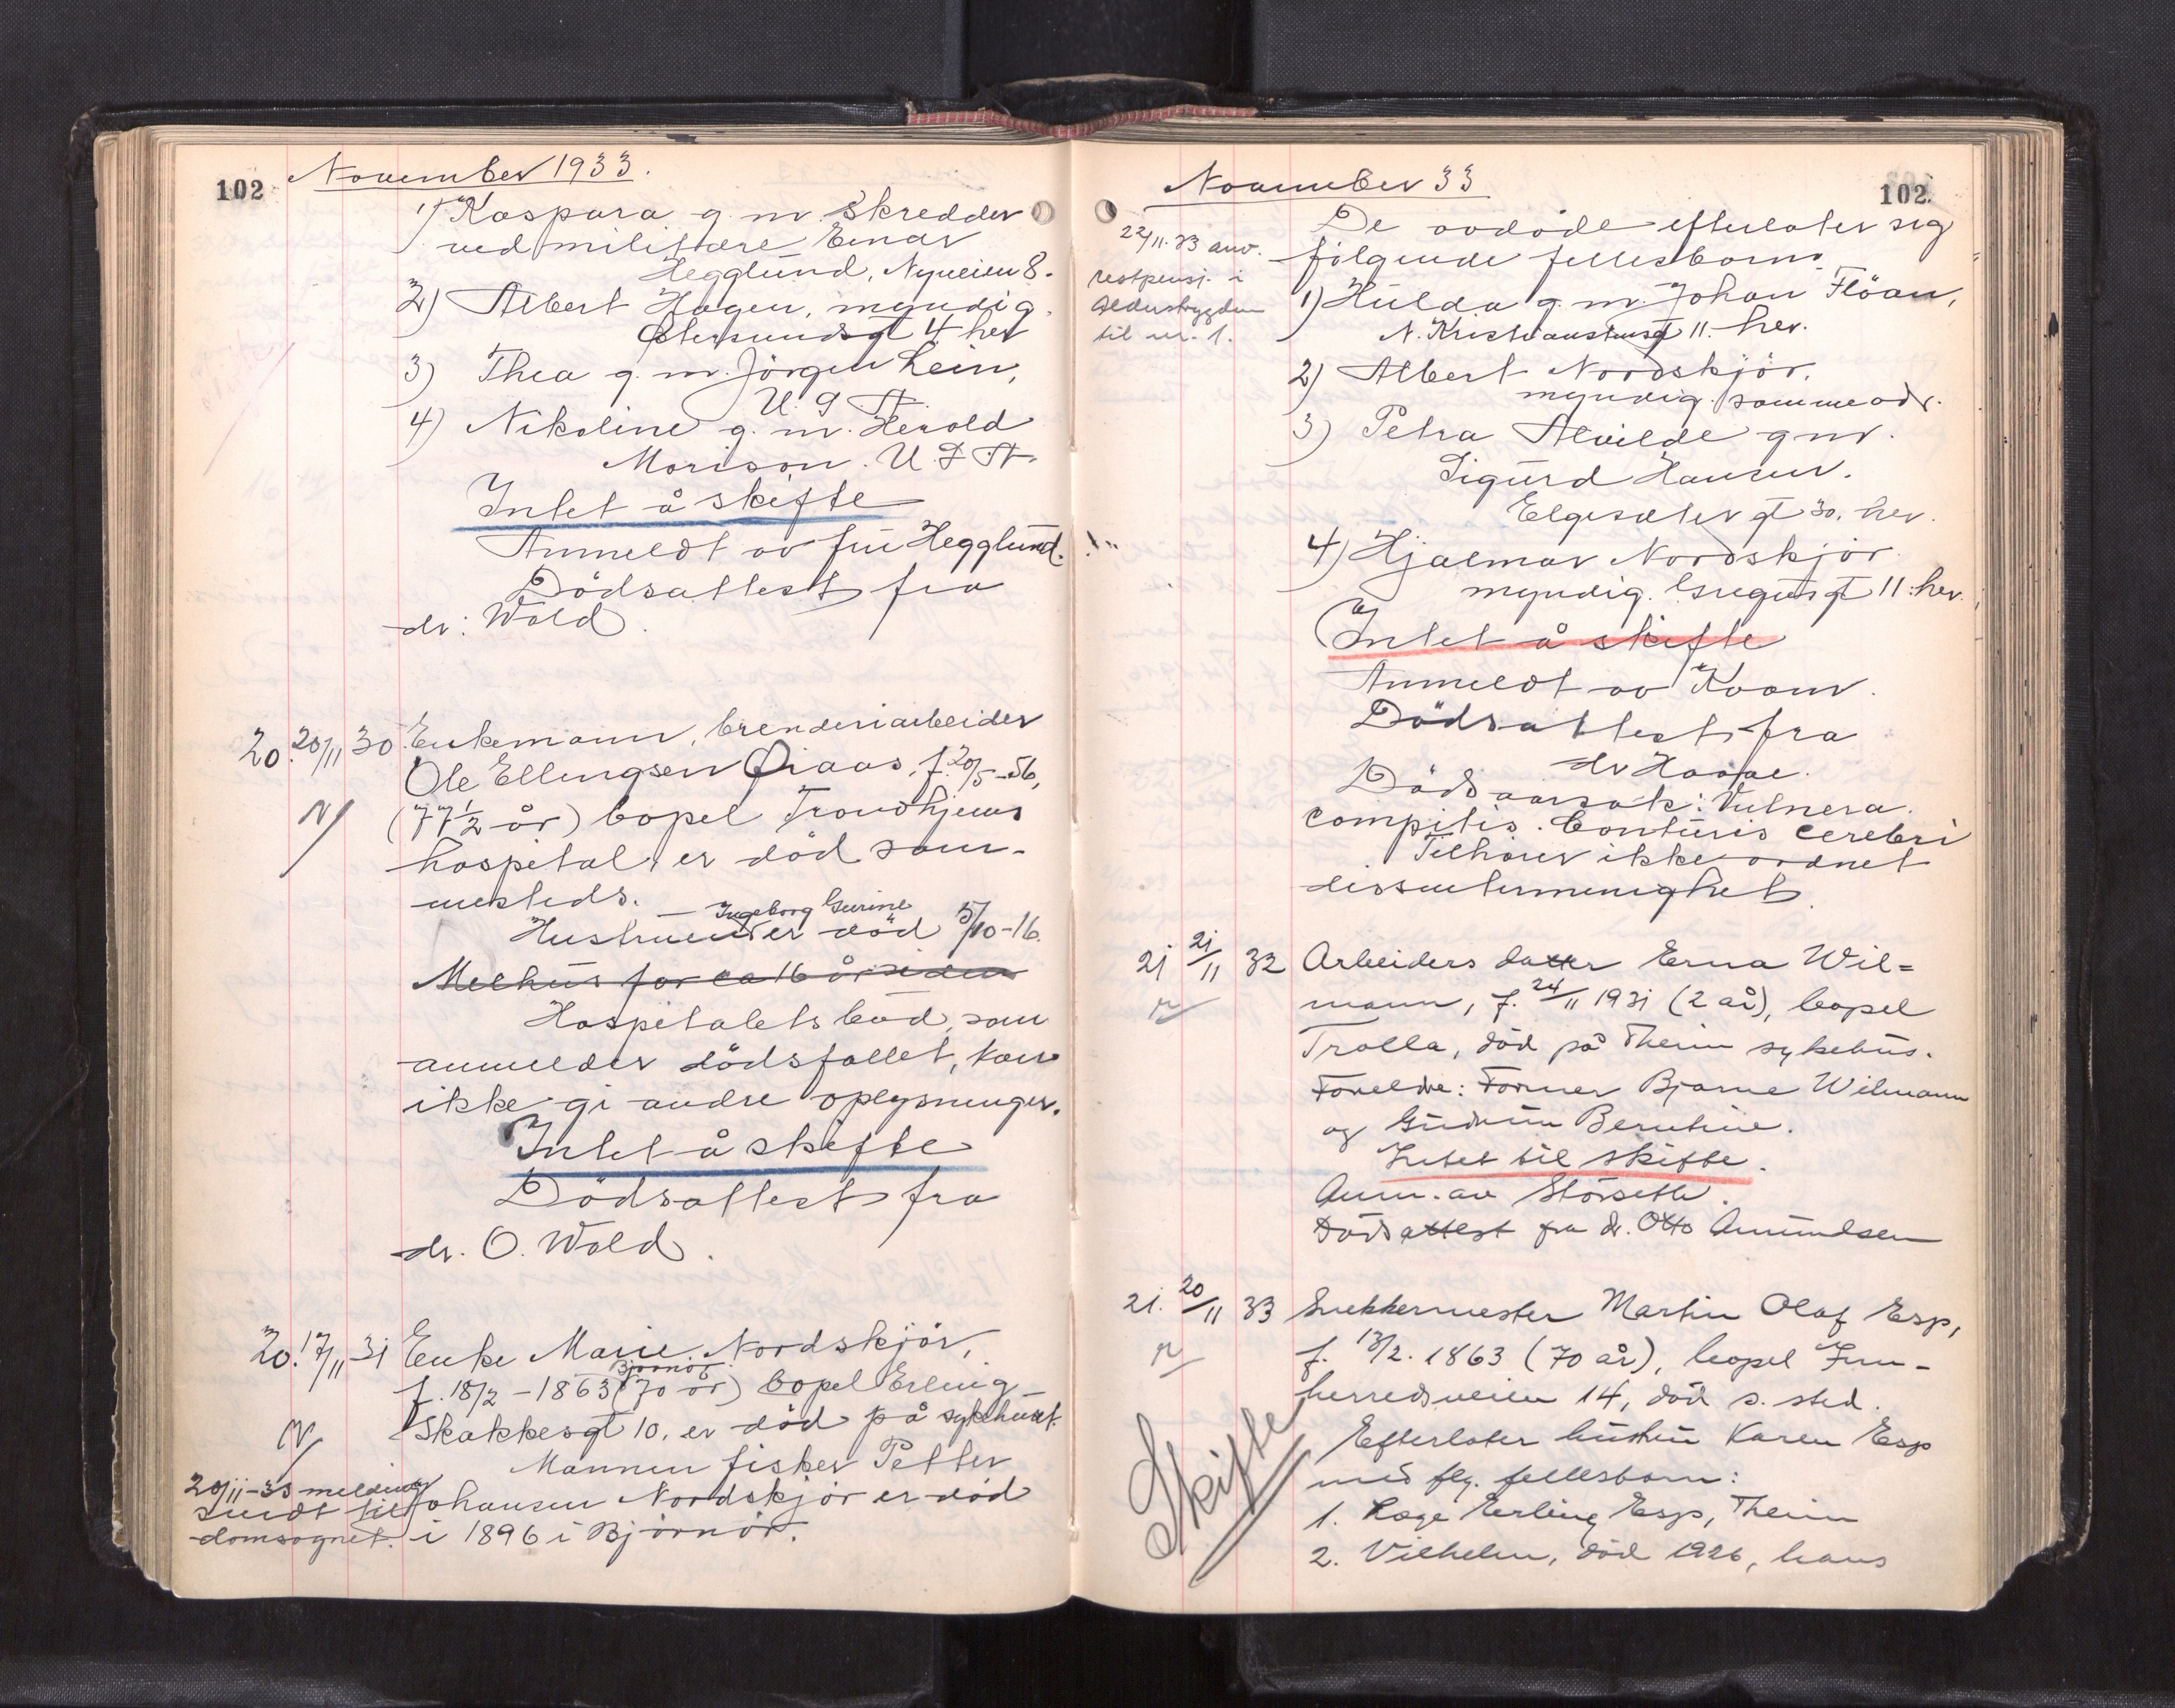 102
November 1933.
1) Kaspara g. m. skredder
ved militære Einar
Hegglund, Nyveien 8.
2) Albert Hagen, myndig.
Østersundsgt 4 her
3) Thea g. m. Jörgen Lein,
U. S. A.
4) Nikoline g. m. Herold
Morison. U. S. A.
Intet å skifte
Anmeldt av fru Hegglund.
Dödsattest fra
dr. Wold.
20. 20/11 30 Enkemann, brenderiarbeider
Ole Ellingsen Öiaas, f. 20/5-56,
N/
(77 1/2 år) bopel Trondhjems
hospital, er död sam-
mesteds.
Ingeborg Gurine
Hustruen er död 5/10-16.
Melhus for ca 16 år siden
Hospitalets bud, som
anmelder dödsfallet, kan
ikke gi andre oplysninger.
Intet å skifte
Dödsattest fra
dr. O. Wold.
20. 17/11 31 Enke Marie Nordskjör,
Bjørnör
f. 18/2-1863 (70 år) bopel Erling
Skakkesgt 10, er död på sykehuset.
N/
Mannen fisker Petter
Johansen Nordskjör er död
i 1896 i Björnör.
20/11-33 melding
sendt til
domsognet.
November 33
102
De avdöde efterlater sig
følgende fellesbarn
22/11.33 anv.
restpensj. i
Alderstrygden
til nr. 1.
1) Hulda g. m. Johan Flöan,
N. Kristiansten̄sgt 11. her.
2) Albert Nordskjör,
myndig. samme adr.
3) Petra Alvilde g m.
Sigurd Hansen.
Elgesetergt 30. her.
4) Hjalmar Nordskjör
myndig. Gregusgt 11. her.
Intet å skifte
Anmeldt av
Dödsattest fra
dr
Dödsaarsak: Vulnera
Contusio cerebri
Tilhører ikke ordnet
dissentermenighet
21 21/11 32 Arbeiders datter Erna Wil=
mann, f. 24/11 1931 (2 år), bopel
Trolla, död på Theim sykehus.
Foreldre: Former Bjarne Wilmann
og Gudrun Berntine.
Intet til skifte.
Anm. av Störseth.
Dödsattest fra dr. Otto Amundsen
21. 20/11 33 Snekkermester Martin Olaf Esp,
f. 13/2. 1863 (70 år), bopel Inn-
herredsveien 14, död s. sted.
Skifte
Efterlater hustru Karen Esp
med flg. fellesbarn:
1. Lage Erling Esp, Theim
2. Vilhelm, död 1926, hans